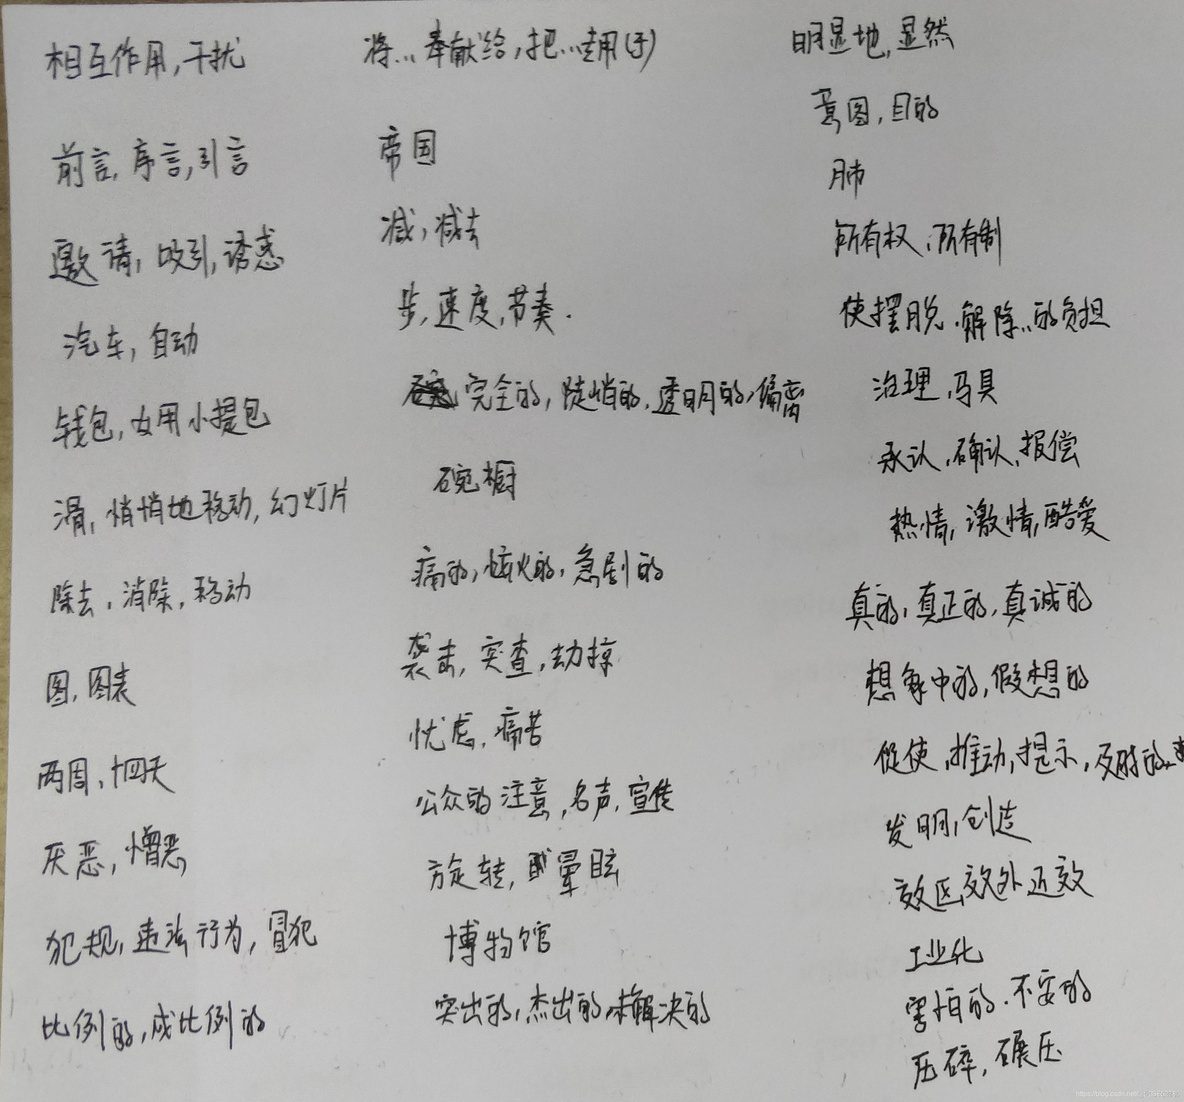 相互作用,干扰
前言,序言,引言
邀请,吸引,诱惑
汽车,自动
钱包,女用小提包
滑,悄悄地移动,幻灯片
除去,消除,移动
图,图表
两周,十四天
厌恶,憎恶
犯规,违法行为,冒犯
比例的,成比例的
将...奉献给,把...专用(于)
帝国
减,减去
步,速度,节奏.
完全的,陡峭的,透明的,偏离
碗橱
痛的,恼火的,急剧的
袭击,突查,劫掠
忧虑,痛苦
公众的注意,名声,宣传
旋转,眩晕眩
博物馆
突出的,杰出的,未解决的
明显地,显然
意图,目的
肺
所有权,所有制
使摆脱.解除...的负担
治理,马具
承认,确认,报偿
热情,激情,酷爱
真的,真正的,真诚的
想象中的,假想的
促使,推动,提示,及时的
发明,创造
效区,效外近效
工业化
害怕的.不安的
压碎,碾压